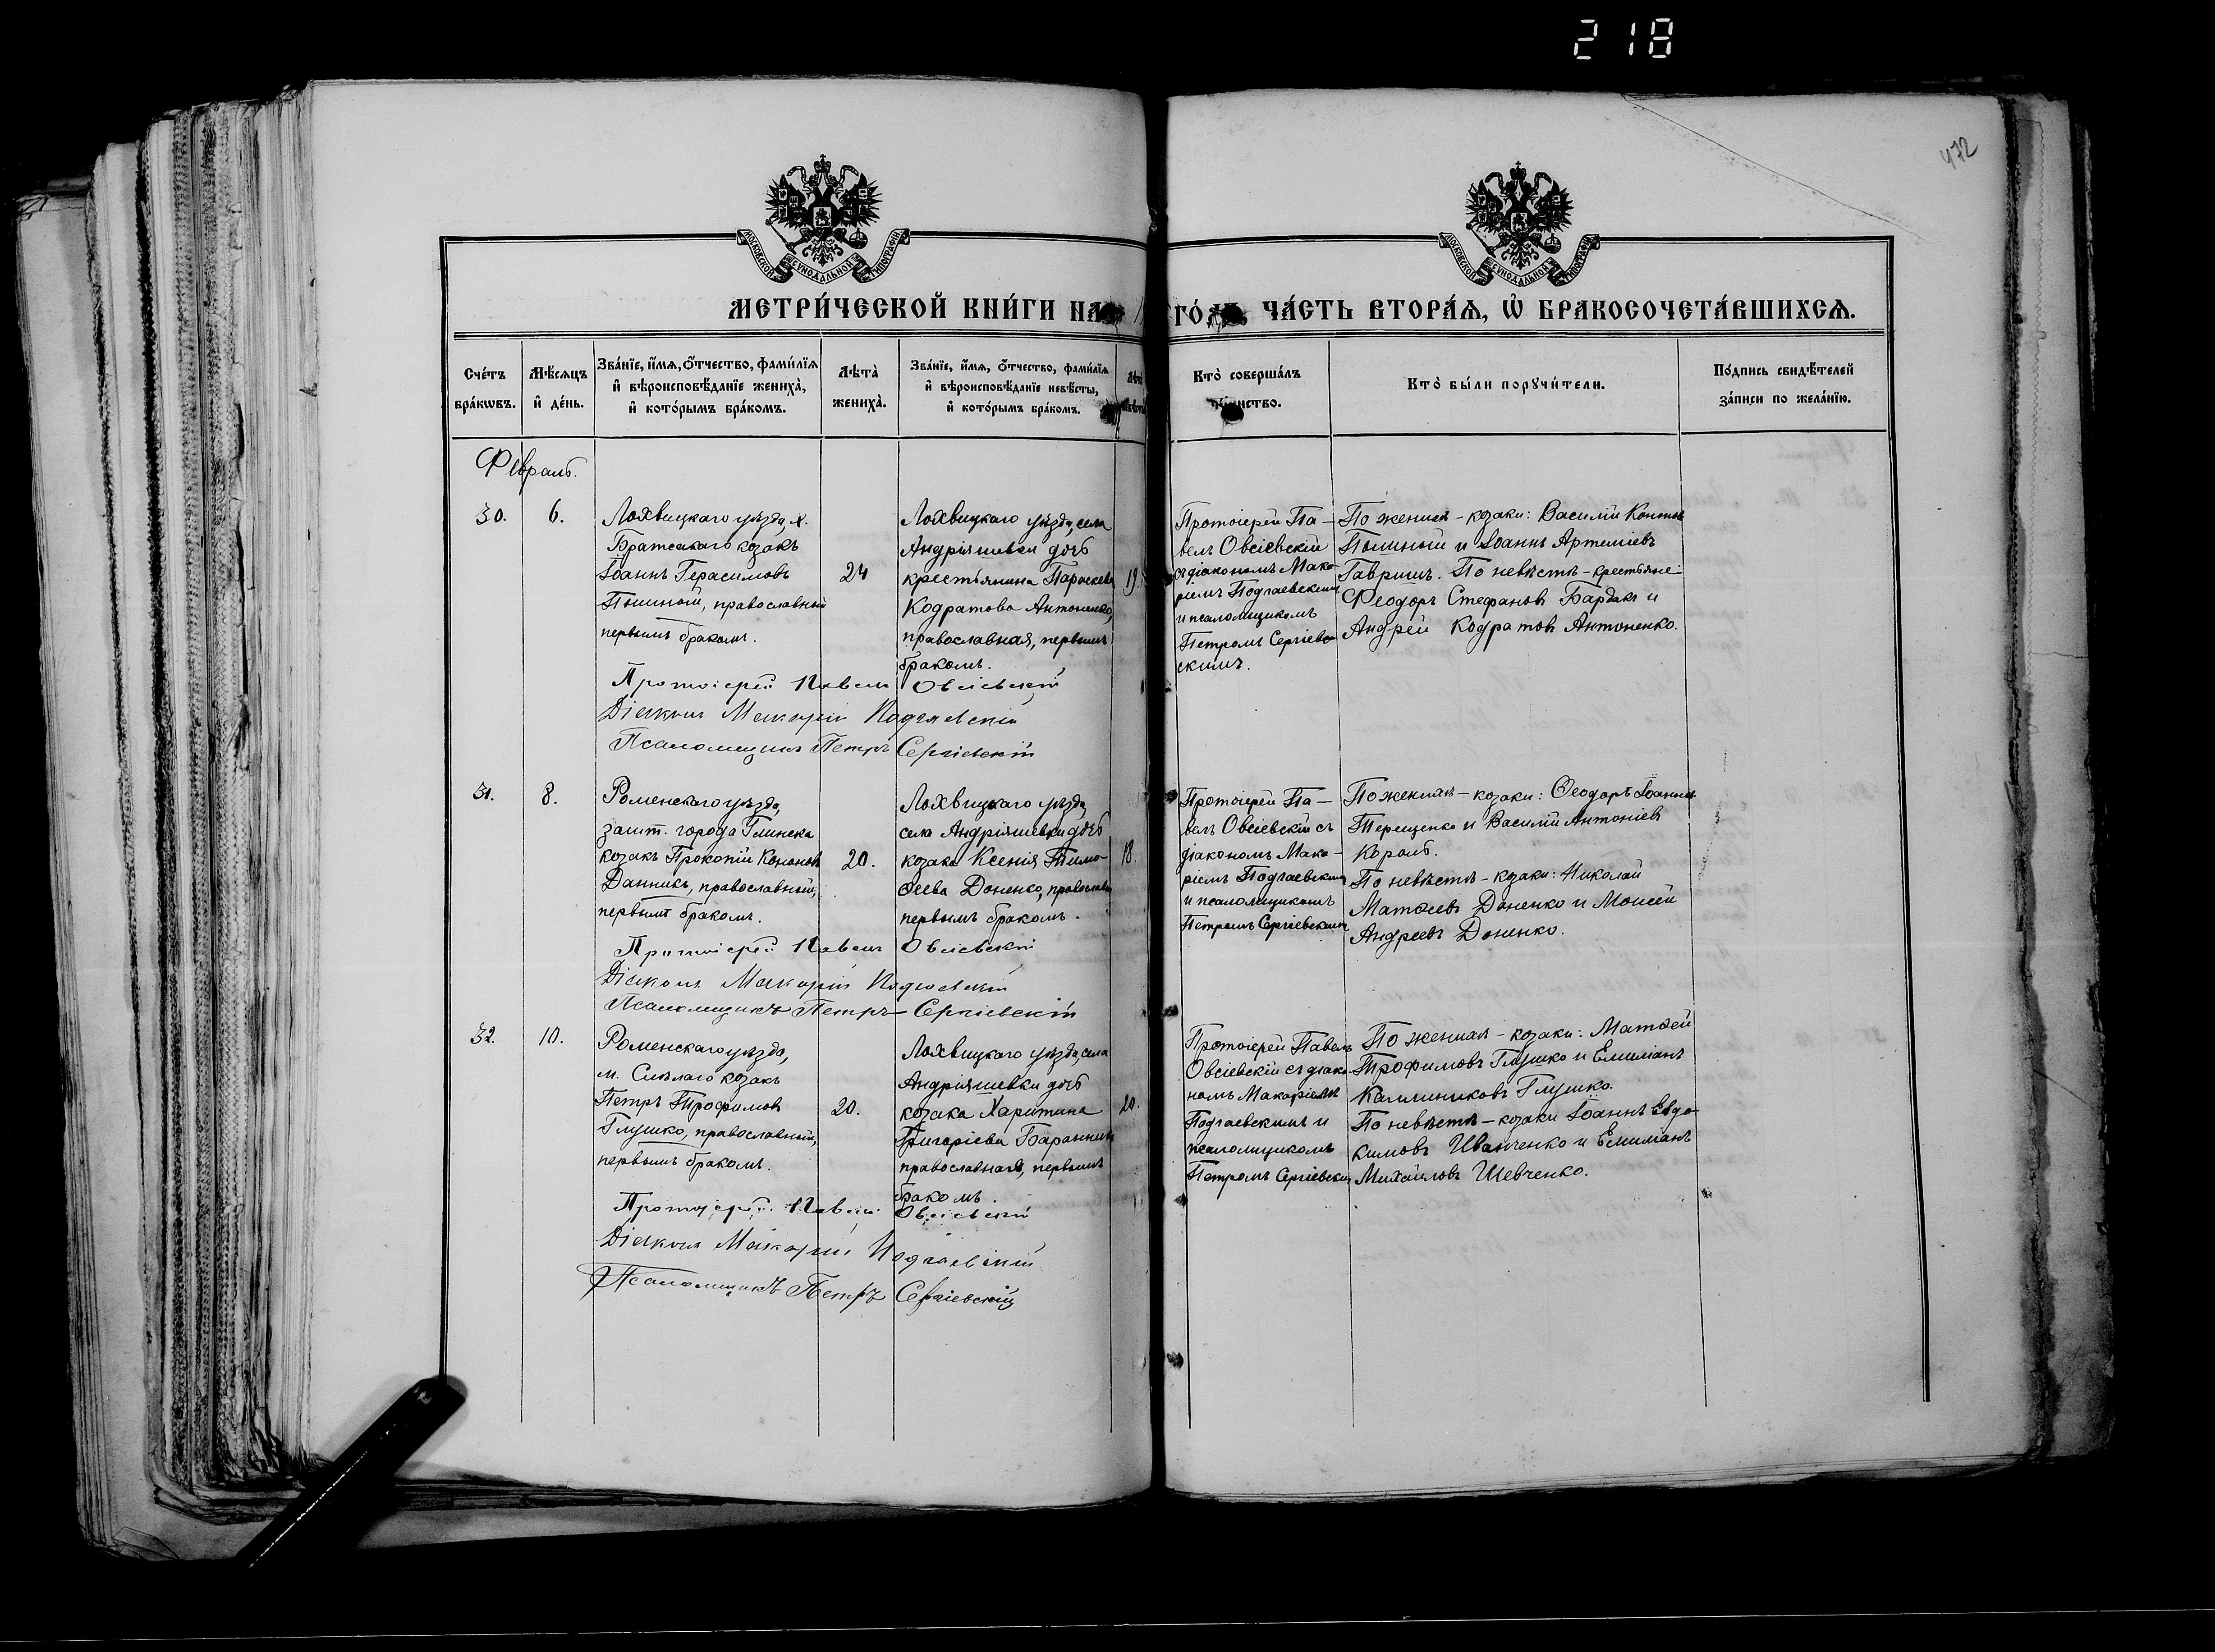 218
472
МОСКОВСКОЙ СѴНОДАЛЬНОЙ ТИПОГРАФІИ
МОСКОВСКОЙ СѴНОДАЛЬНОЙ ТИПОГРАФІИ
МЕТРИ́ЧЕСКОЙ КНИ́ГИ НА ГО́ ЧА́СТЬ ВТОРА́Я, Ѽ БРАКОСОЧЕТА́ВШИХСЯ.
Сче́тъ
бра́кѡвъ.
Мѣ́сяцъ
и҆ де́нь.
Зва́нїе, и҆́мя, ѻ҆́тчество, фами́лїя
и҆ вѣроисповѣ́данїе жениха̀,
и҆ кото́рымъ бра́комъ.
Лѣта̀
жениха̀.
Зва́нїе, и҆́мя, ѻ҆́тчество, фами́лїя
и҆ вѣроисповѣ́данїе невѣ́сты,
и҆ кото́рымъ бра́комъ.
Кто̀ соверша́лъ
Кто̀ бы́ли порꙋчи́тели.
По́дпись свидѣ́телей
за́писи по жела́нїю.
Февраль.
30.
6.
Лохвицкаго уѣзда, х.
Братскаго козакъ
Іоаннъ Герасимовъ
православный
первымъ бракомъ.
24
Лохвицкаго уѣзда, села
Андріяшевки дочь
крестьянина Параскева
Кодратова Антоненко,
православная, первымъ
бракомъ.
19.
Протоіерей Па-
велъ Овсіевскій
съ діакономъ Мака-
ріемъ Подгаевскимъ
и псаломщикомъ
Петромъ Сергіев-
скимъ.
По женихѣ - козаки: Василій Кононовъ
и Іоаннъ Артеміевъ
Гавришъ. По невѣстѣ - крестьяне:
Ѳеодоръ Стефановъ Бардакъ и
Андрей Кодратовъ Антоненко.
Протоіерей Павелъ Овсіевскій
Діаконъ Макарій Подгаевскій
Псаломщикъ Петръ Сергіевскій
31.
8.
Роменскаго уѣзда,
зашт. города Глинска
козакъ Прокопій Кононовъ
Данникъ, православный,
первымъ бракомъ.
20.
Лохвицкаго уѣзда,
села Андріяшевки дочь
козака Ксенія Тимо-
ѳеева Доненко, православная
первымъ бракомъ.
18.
Протоіерей Па-
велъ Овсіевскій съ
діакономъ Мака-
ріемъ Подгаевскимъ
и псаломщикомъ
Петромъ Сергіевскимъ
По женихѣ - козаки: Ѳеодоръ Іоанновъ
Терещенко и Василій Антоніевъ
Король.
По невѣстѣ - козаки: Николай
Матѳеевъ Доненко и Моисей
Андреевъ Доненко.
Протоіерей Павелъ Овсіевскій
Діаконъ Макарій Подгаевскій
Псаломщикъ Петръ Сергіевскій
32.
10.
Роменскаго уѣзда,
м. Смѣлаго козакъ
Петръ Трофимовъ
Глушко, православный,
первымъ бракомъ.
20.
Лохвицкаго уѣзда, села
Андріяшевки дочь
козака Харитина
Григоріева Баранникъ
православная, первымъ
бракомъ.
20.
Протоіерей Павелъ
Овсіевскій съ діако-
номъ Макаріемъ
Подгаевскимъ и
псаломщикомъ
Петромъ Сергіевскимъ
По женихѣ - козаки: Матѳей
Трофимовъ Глушко и Емиліанъ
Каллиниковъ Глушко.
По невѣстѣ - козаки Іоаннъ Евдо-
кимовъ Иванченко и Емиліанъ
Михайловъ Шевченко.
Протоіерей Павелъ Овсіевскій
Діаконъ Макарій Подгаевскій
Псаломщикъ Петръ Сергіевскій